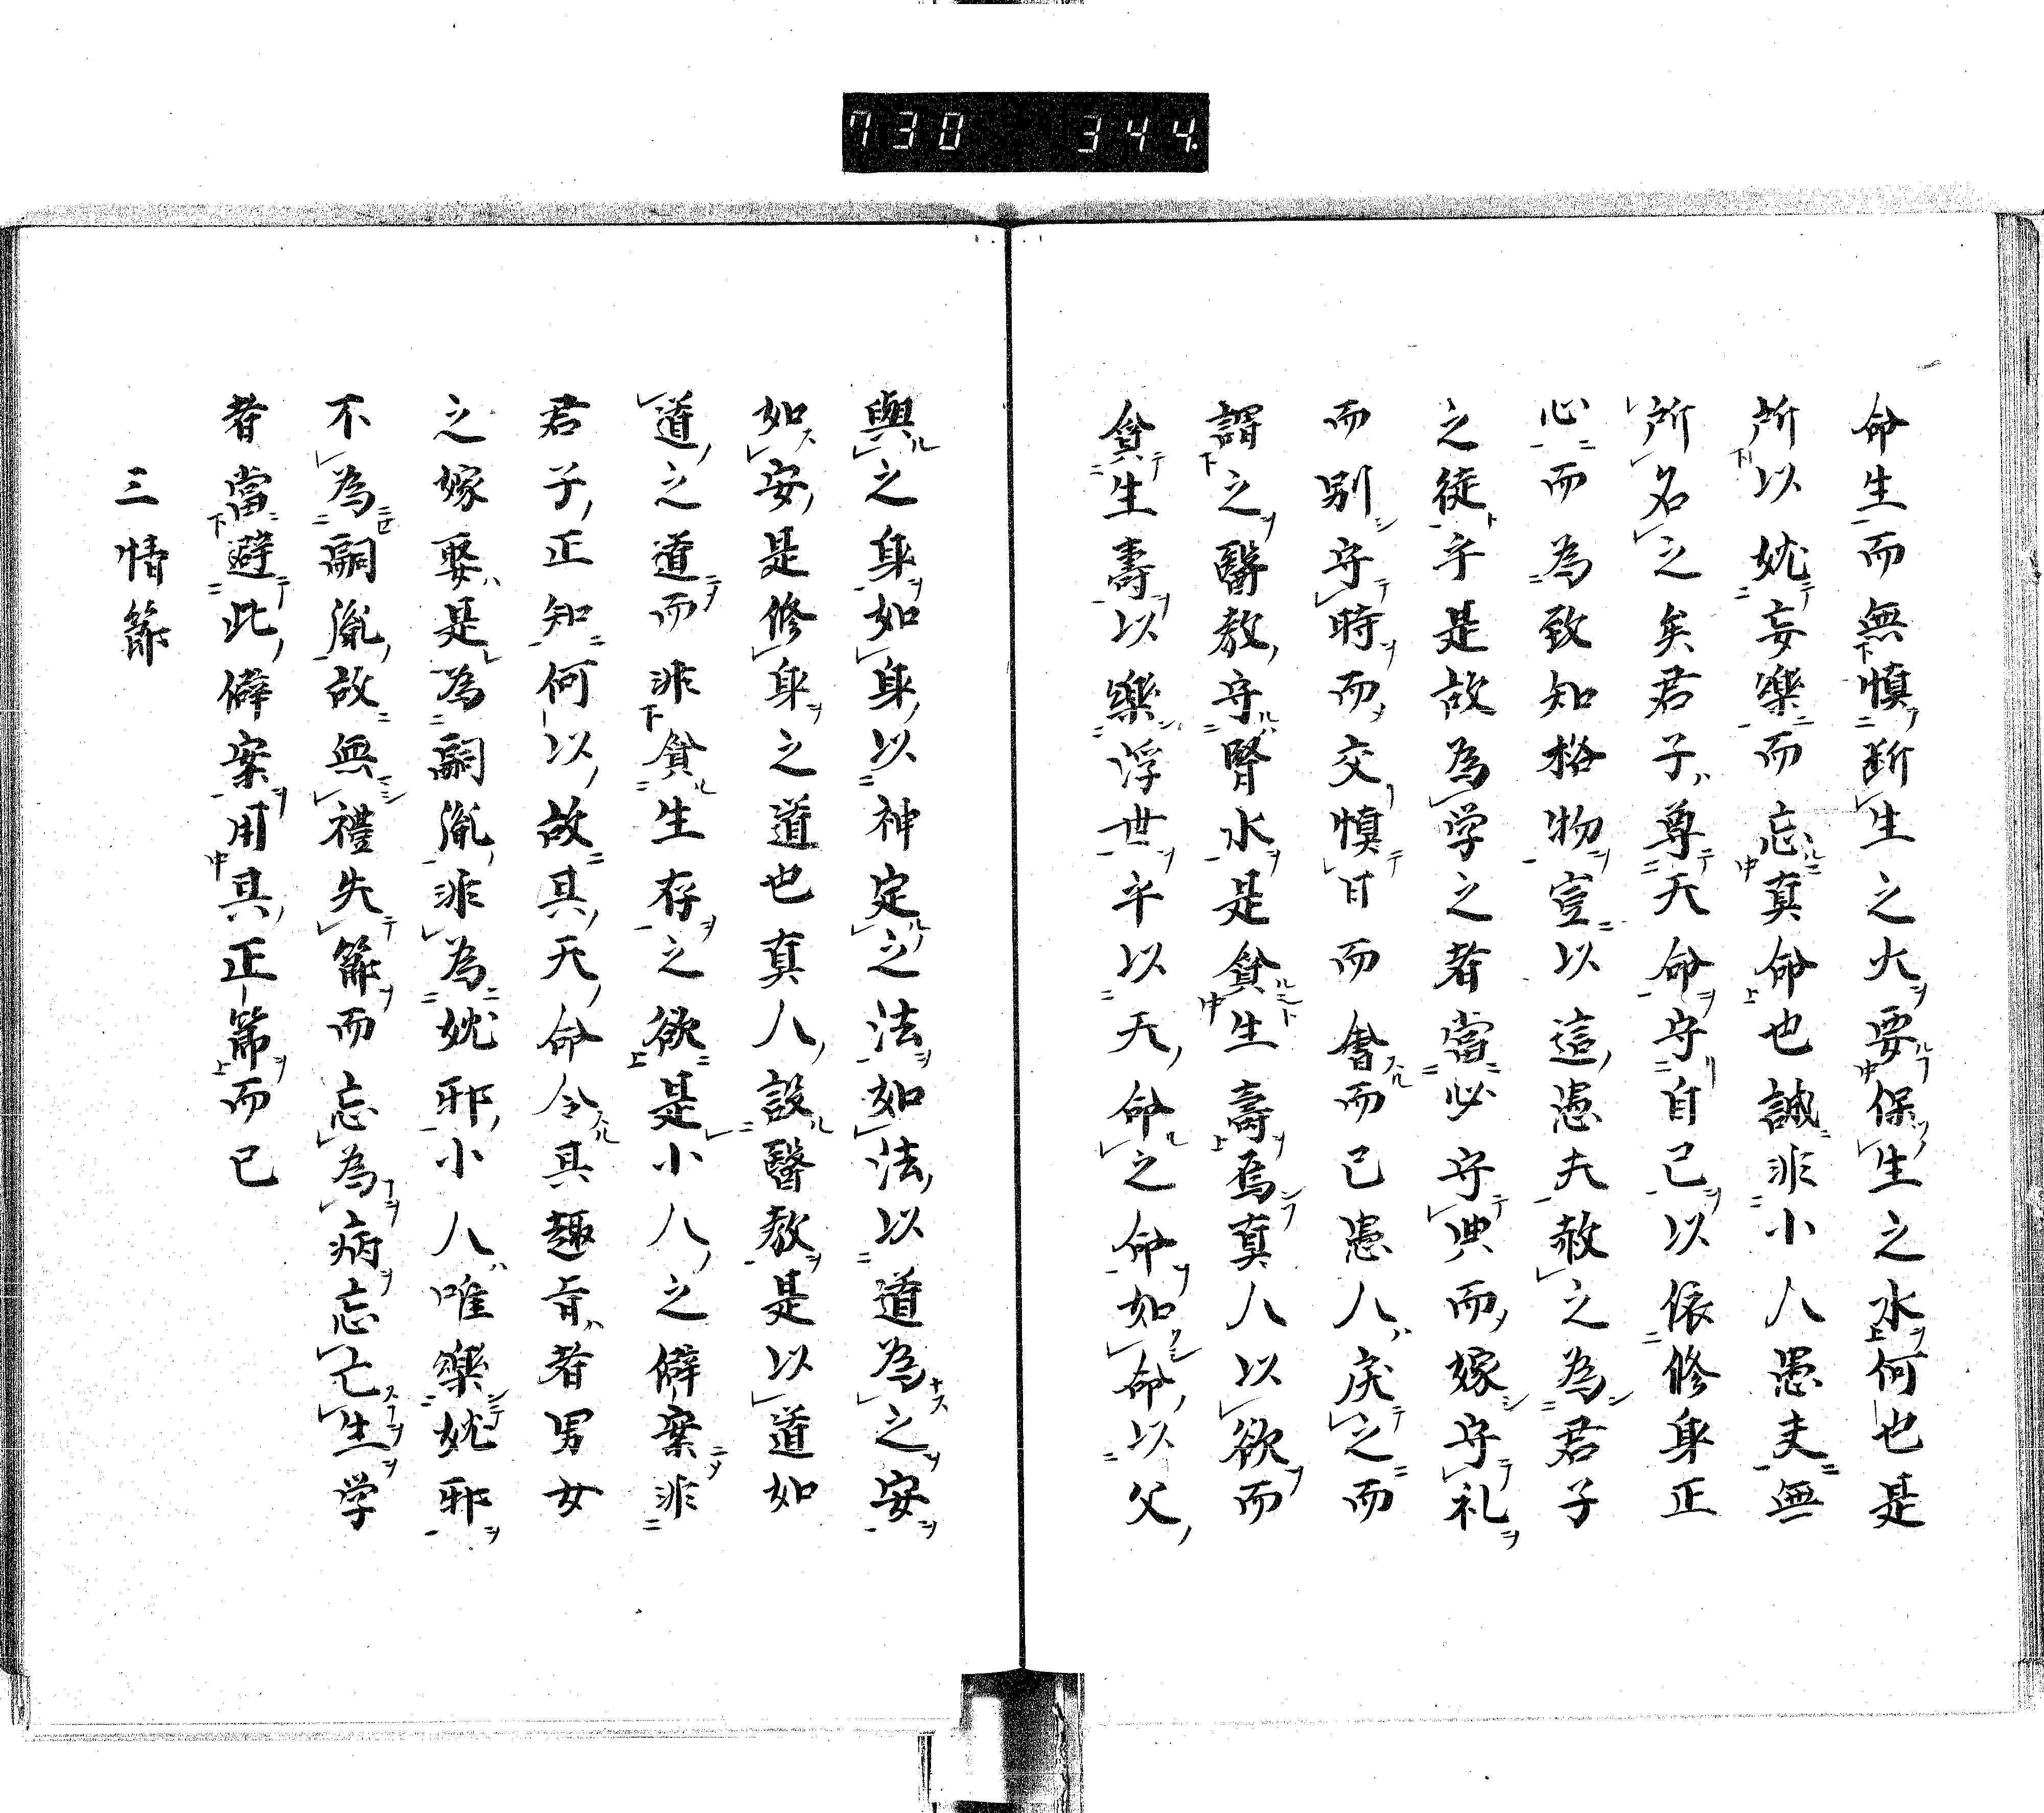 730 344
命生而無慎断生之火要保生之水何也是
所以妣妄樂而忘真命也誠非小人愚夫無
所名之矣君子尊天命守自己以依修身正
心而為致知格物豈以這愚夫赦之為君子
之徒乎是故為学之者當必守典而嫁守礼
而別守時而交慎日而會而已愚人戻之而
謂之醫教守腎水是貧生壽焉真人以欲而
貧生壽以樂浮世乎以天命之命如命以父
與之身如身以神定之法如法以道為之安
如安是修身之道也真人設醫教是以道如
道之道而非貧生存之欲是小人之僻案非
君子正知何以故其天命令其趣旨者男女
之嫁娶是為嗣胤非為妣邪小人唯樂妣邪
不為嗣胤故無禮失節而忘為病忘亡生学
者當避此僻案用其正節而已
三情節